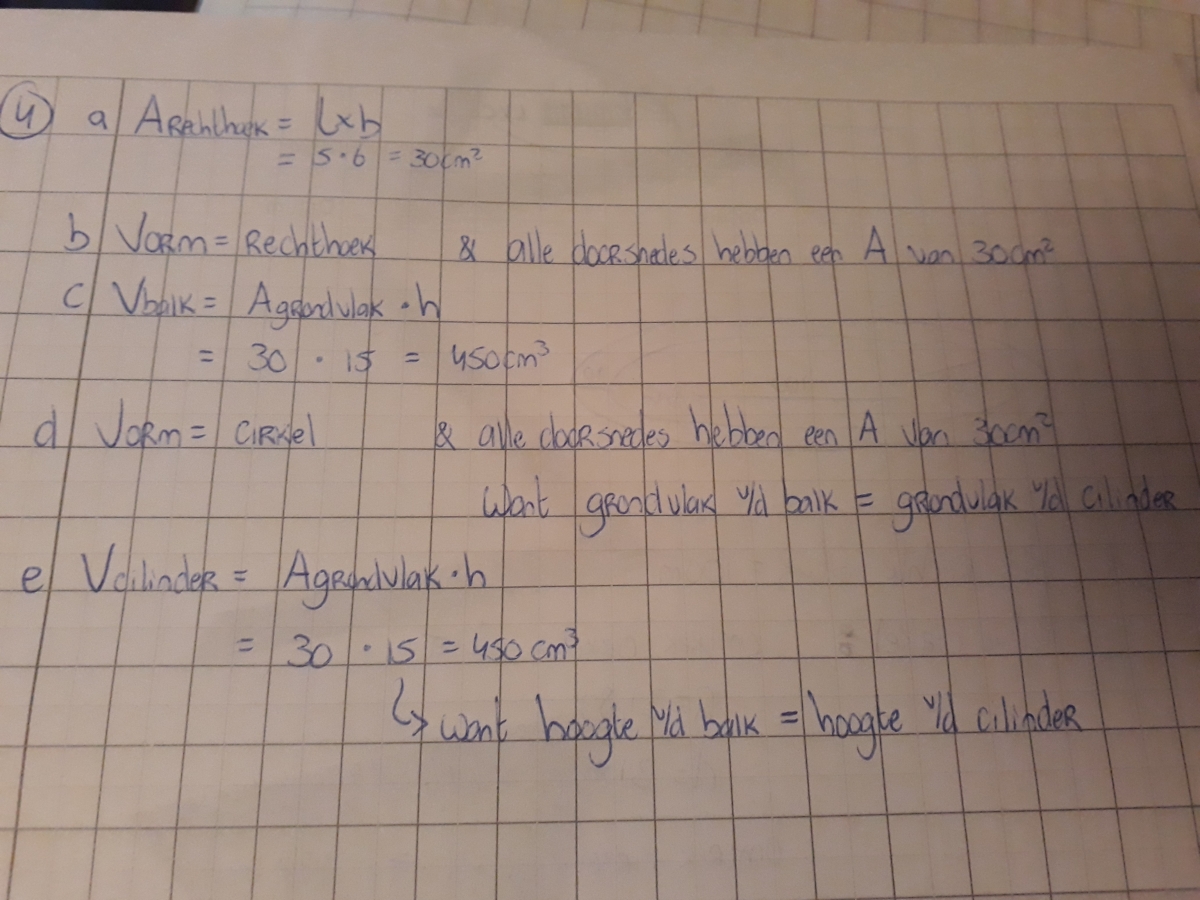 4 a ARechthoek = l×b
= 5·6 = 30cm²
b Vorm = Rechthoek & alle doorsnedes hebben een A van 30cm²
c Vbalk = Agrondvlak · h
= 30 · 15 = 450cm³
d Vorm = cirkel & alle doorsnedes hebben een A van 30cm²
Want grondvlak v/d balk = grondvlak v/d cilinder
e Vcilinder = Agrondvlak · h
= 30 · 15 = 450 cm³
↳ want hoogte v/d balk = hoogte v/d cilinder